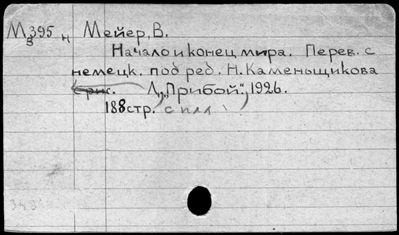 М395 н Мейер, В.
в
Начало и конец мира. Перев. с
немецк. под ред. Н. Каменьщикова
с рис. Л., "Прибой", 1926.
188 стр. с илл.